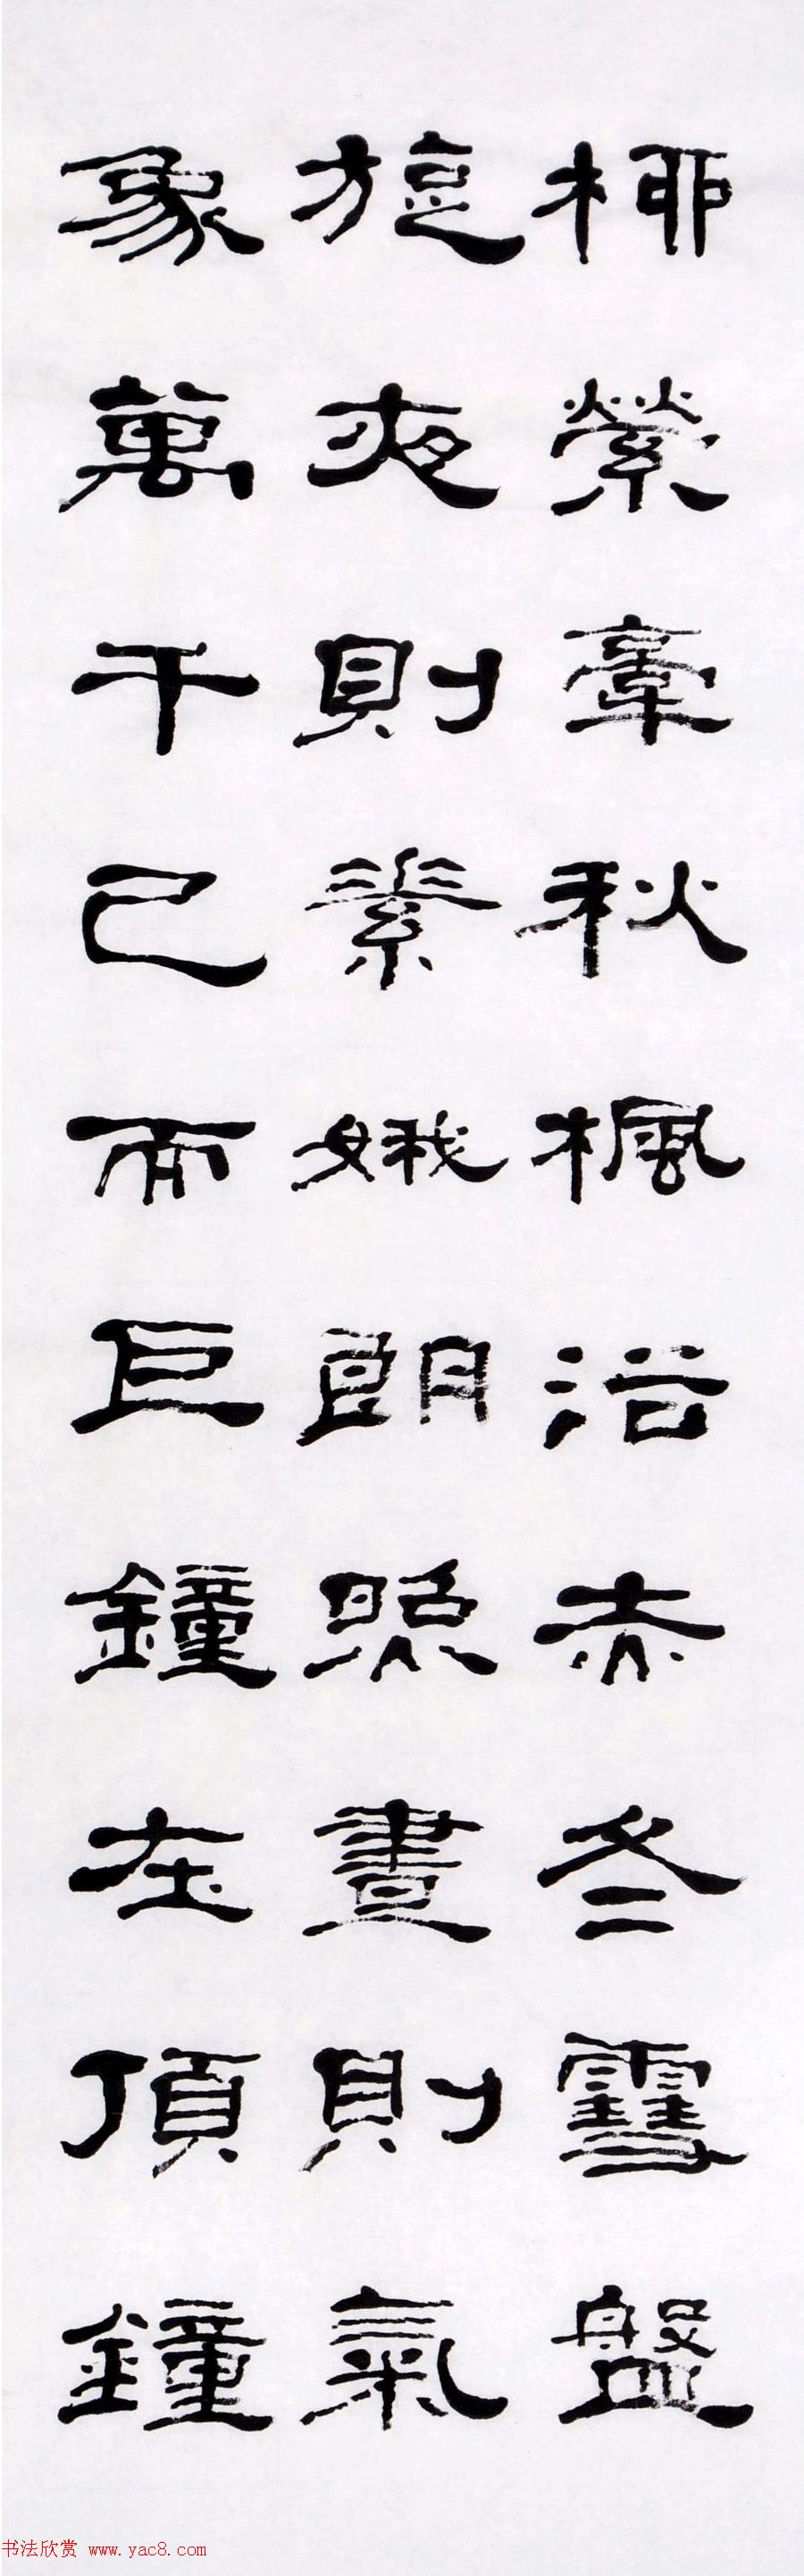 柳縈牽秋楓冶赤冬雪盤
旋夜則素娥朗照晝則氣
象萬千已而巨鐘在頂鐘
书法欣赏 www.yac8.com